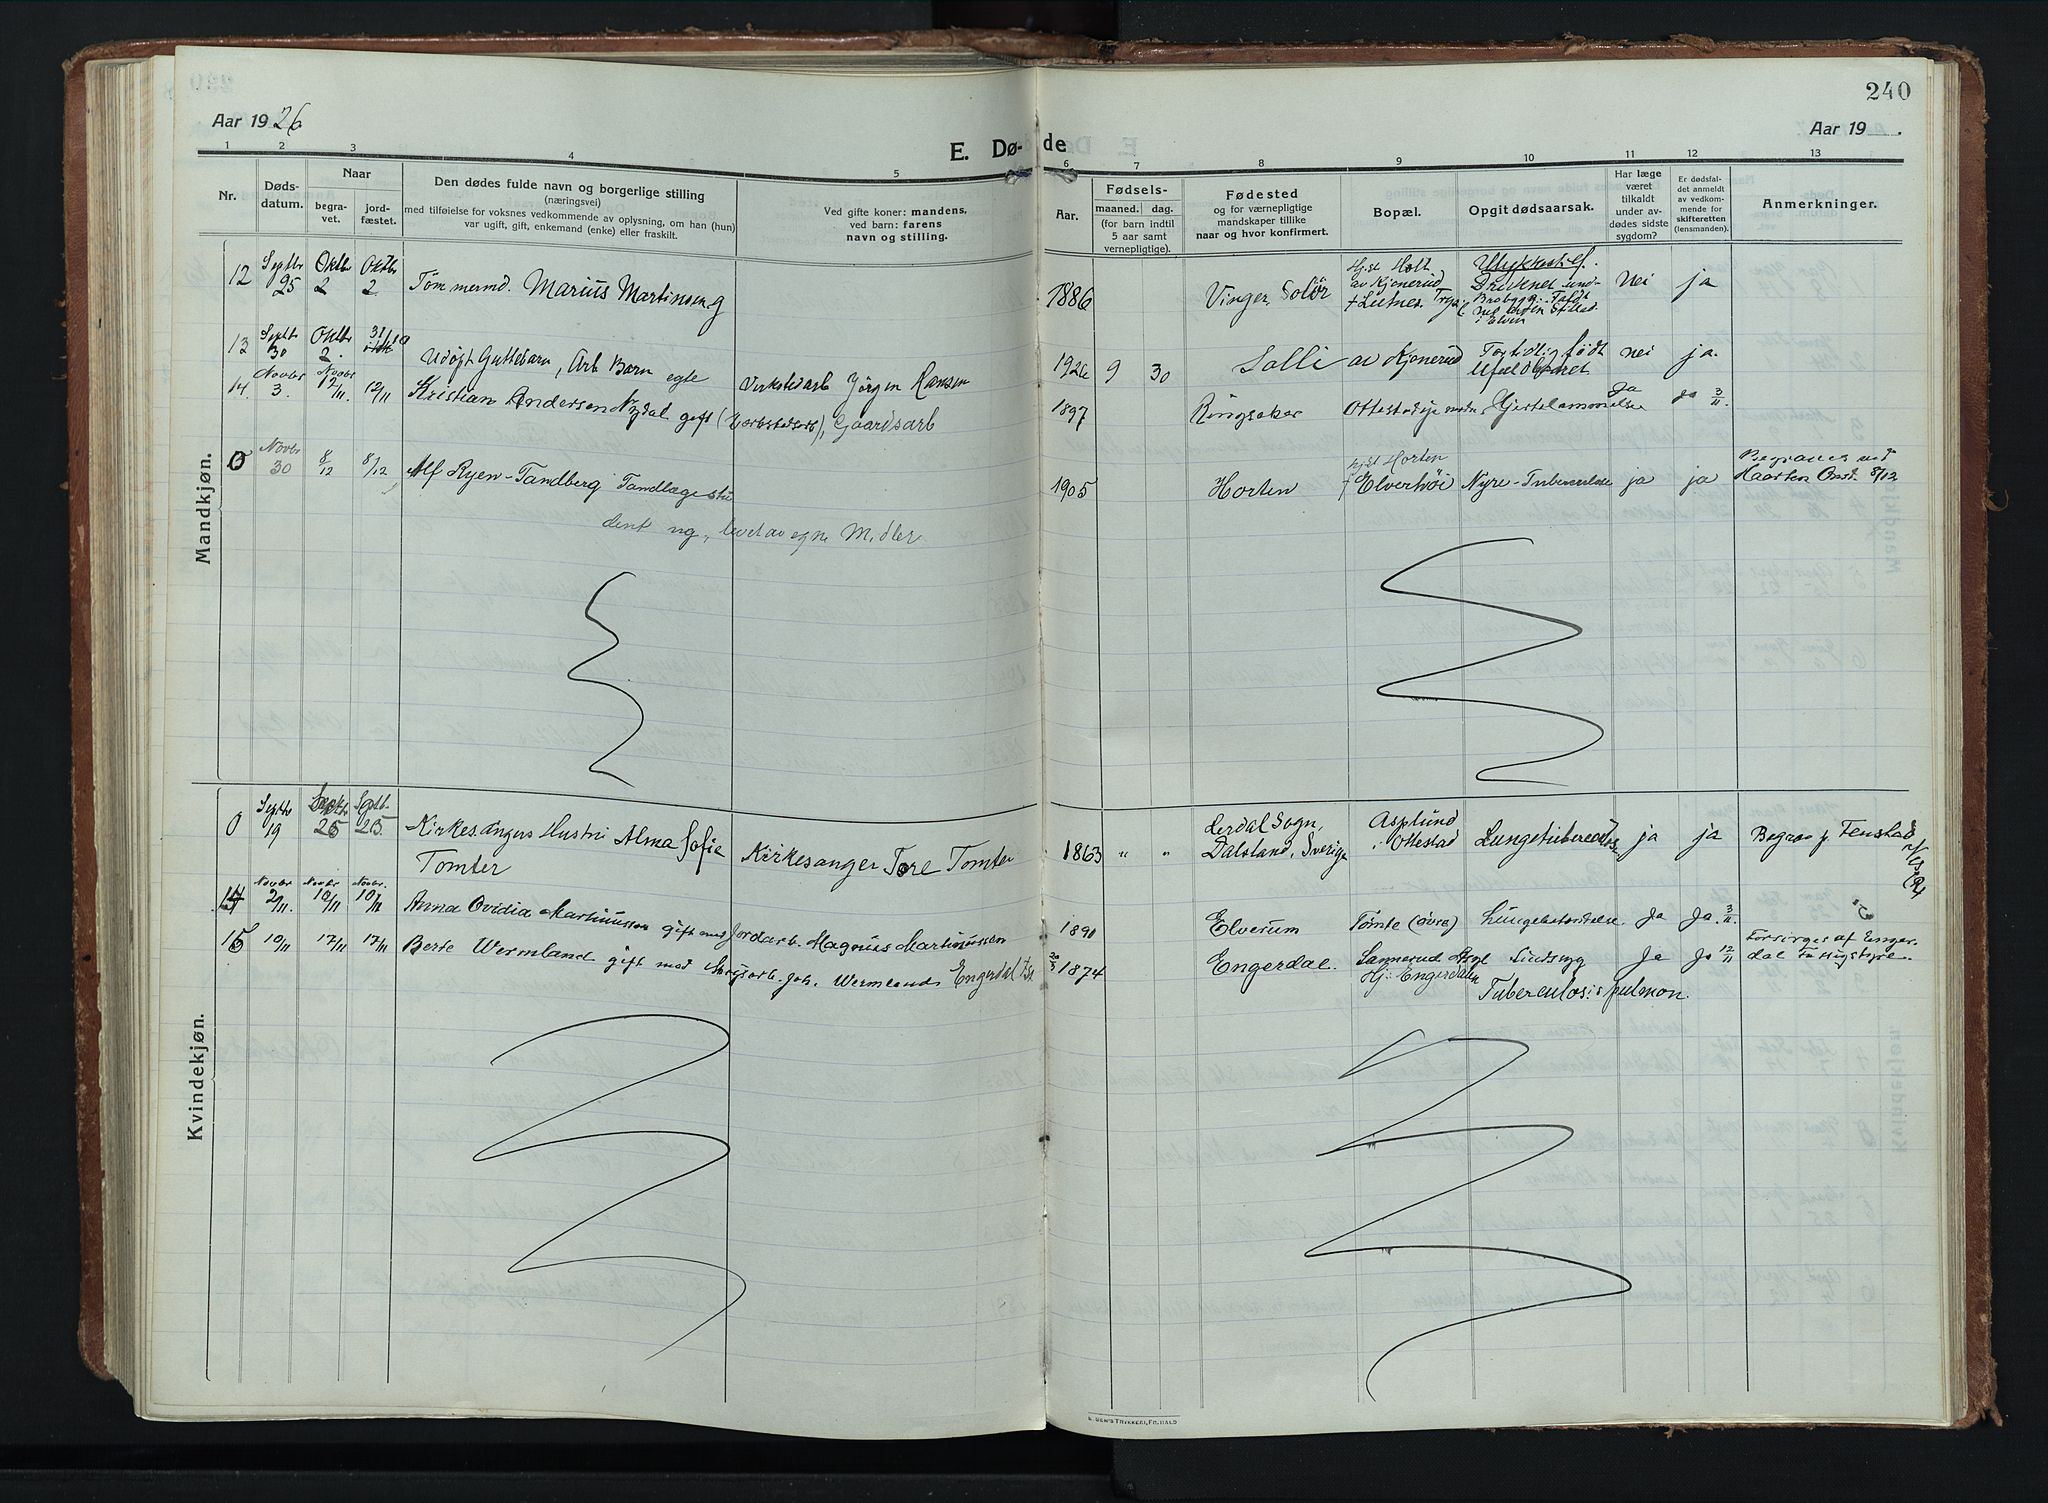 240
Aar 1926
Aar 19
E. Dø-
de
1 2 3 4 5 6 7 8 9 10 11 12 13
Nr.
Døds-
datum.
Naar
begra-
vet.
jord-
fæstet.
Den dødes fulde navn og borgerlige stilling
(næringsvei)
med tilføielse for voksnes vedkommende av oplysning, om han (hun)
var ugift, gift, enkemand (enke) eller fraskilt.
Ved gifte koner: mandens,
ved barn: farens
navn og stilling.
Aar.
Fødsels-
maaned. dag.
(for barn indtil
5 aar samt
vernepligtige).
Fødested
og for værnepligtige
mandskaper tillike
naar og hvor konfirmert.
Bopæl.
Opgit dødsaarsak.
Har læge
været
tilkaldt
under av-
dødes sidste
sygdom?
Er dødsfal-
det anmeldt
av vedkom-
mende for
skifteretten
(lensmanden).
Anmerkninger.
Mandkjøn.
12 Septbr 25 Oktbr 2 Oktbr 2 Tømmermd. Marius Martinsen g 1886 Vinger, Solør nei ja
13 Septbr 30 Oktbr 2. Udøpt Guttebarn, Arb Barn egte Verkstedarb Jørgen Hansen 1926 9 30 Solli av Kjønerud For tidlig født nei ja.
14. Novbr 3. Novbr 12/11. 12/11 Kristian Andersen Nydal gift Gaardsarb 1897 Ringsaker Ja Ja 3/11.
0 Novbr 30 8/12 8/12 Alf Ryen-Tandberg Tandlægestu
dent ug., levet av egne Midler 1905 Horten hjst Horten
† Elverhøi Nyre-Tuberculose ja ja Begraves ved
8/12
Kvindekjøn.
0 Septbr 19 Septbr 25 Septb. 25. Kirkesangers Hustru Alma Sofie
Tomter Kirkesanger Tore Tomter 1863 " " Sogn,
Dalsland, Sverige Asplund
Ottestad Lungetuberculose ja ja Begrav p. Fenstad
Novbr 2/11. Novbr 10/11 Novbr. 10/11 Anna Ovidia Martinussen gift med Jordarb. Magnus Martinussen 1890 Elverum Tømte (øvre) Lungebetændelse Ja Ja. 3/11.
15 10/11 17/11 17/11 Berte Wermland gift med Skogsarb. Joh. Wermlands Engerdal 20/3 1874 Engerdal. Sannerud
Hj: Engerdalen Sindsyg
Tuberculosis pulmon. Ja Ja 12/11 Forsørges af Enger-
dal Fattigstyre.